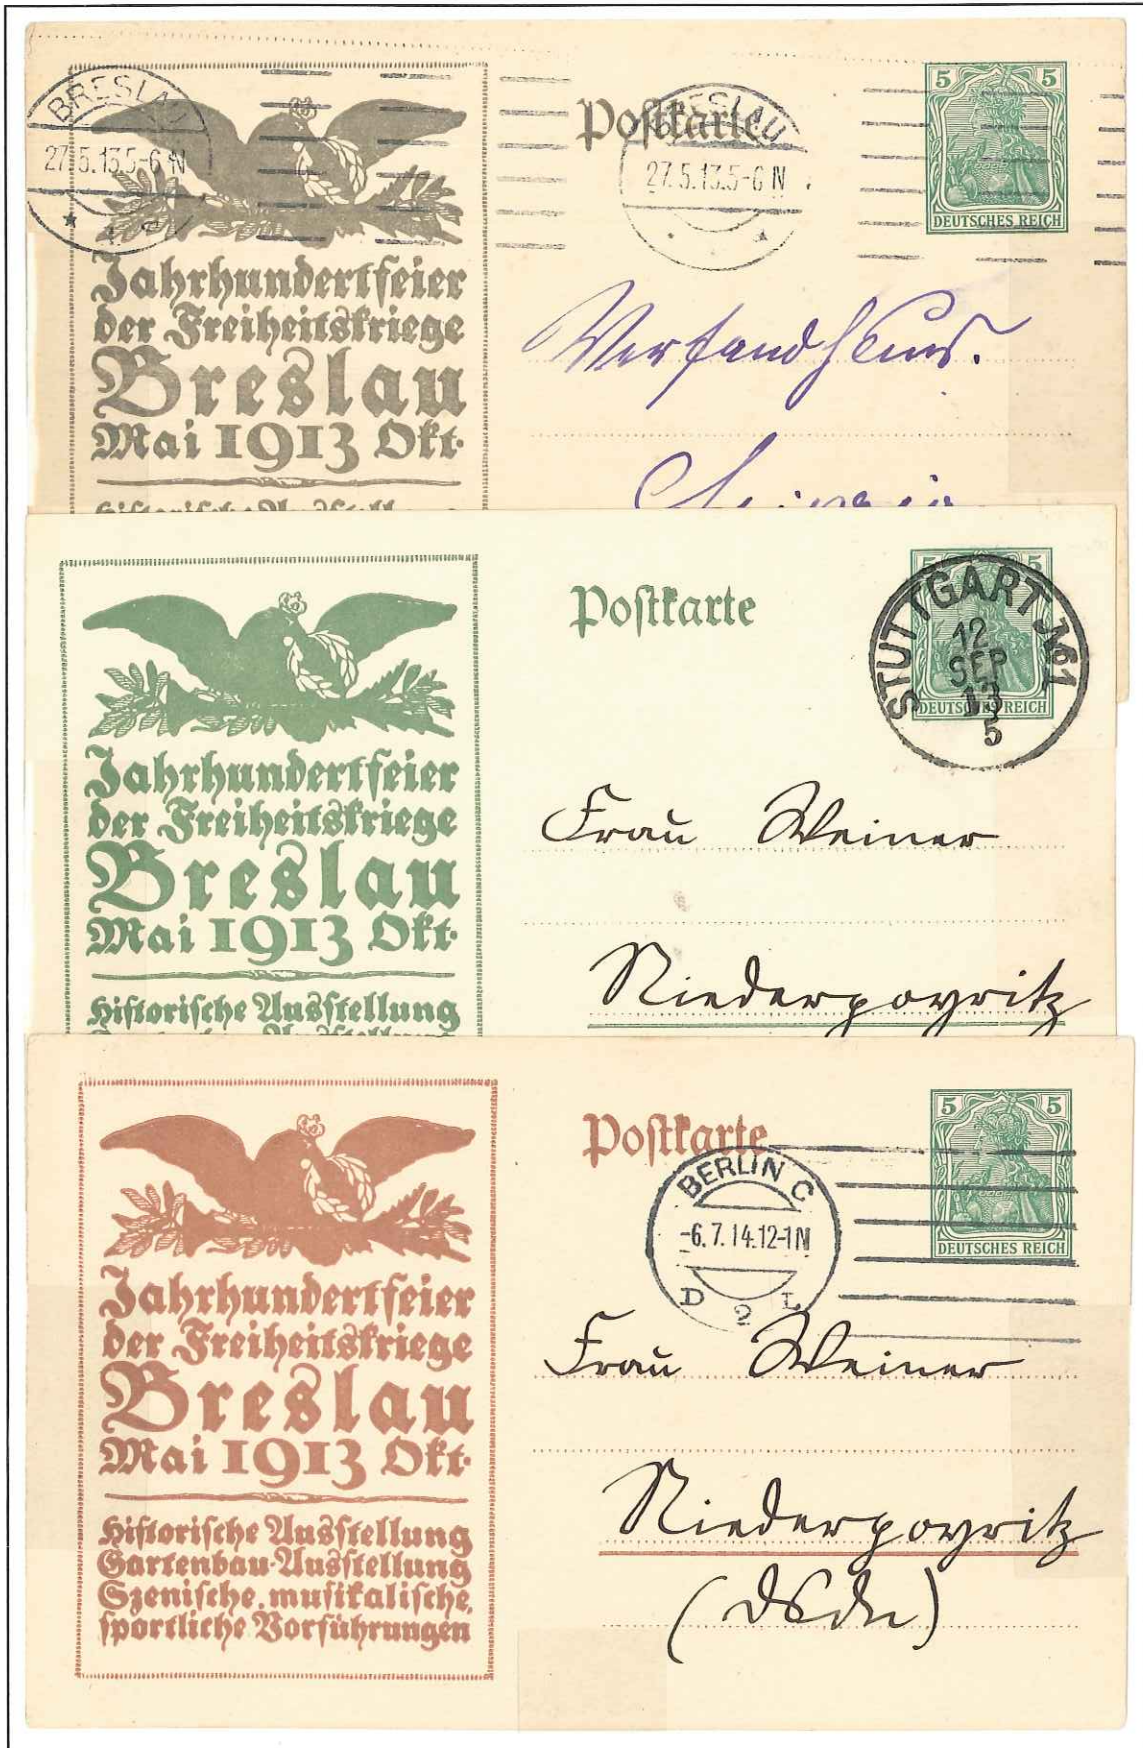 BRESLAU
27.5.13.5-6 N
Postkarte
BRESLAU
27.5.13.5-6 N
5 5
DEUTSCHES REICH
Jahrhundertfeier
der Freiheitskriege
Breslau
Mai 1913 Okt.
Historische Ausstellung
Versandhaus.
Leipzig
Postkarte
5 5
DEUTSCHES REICH
STUTTGART No 1
12
SEP
13
5
Jahrhundertfeier
der Freiheitskriege
Breslau
Mai 1913 Okt.
Historische Ausstellung
Gartenbau-Ausstellung
Frau Weiner
Niederpoyritz
Postkarte
BERLIN C
-6.7.14.12-1N
D 2 L
5 5
DEUTSCHES REICH
Jahrhundertfeier
der Freiheitskriege
Breslau
Mai 1913 Okt.
Historische Ausstellung
Gartenbau-Ausstellung
Szenische, musikalische,
sportliche Vorführungen
Frau Weiner
Niederpoyritz
(Dsdn)